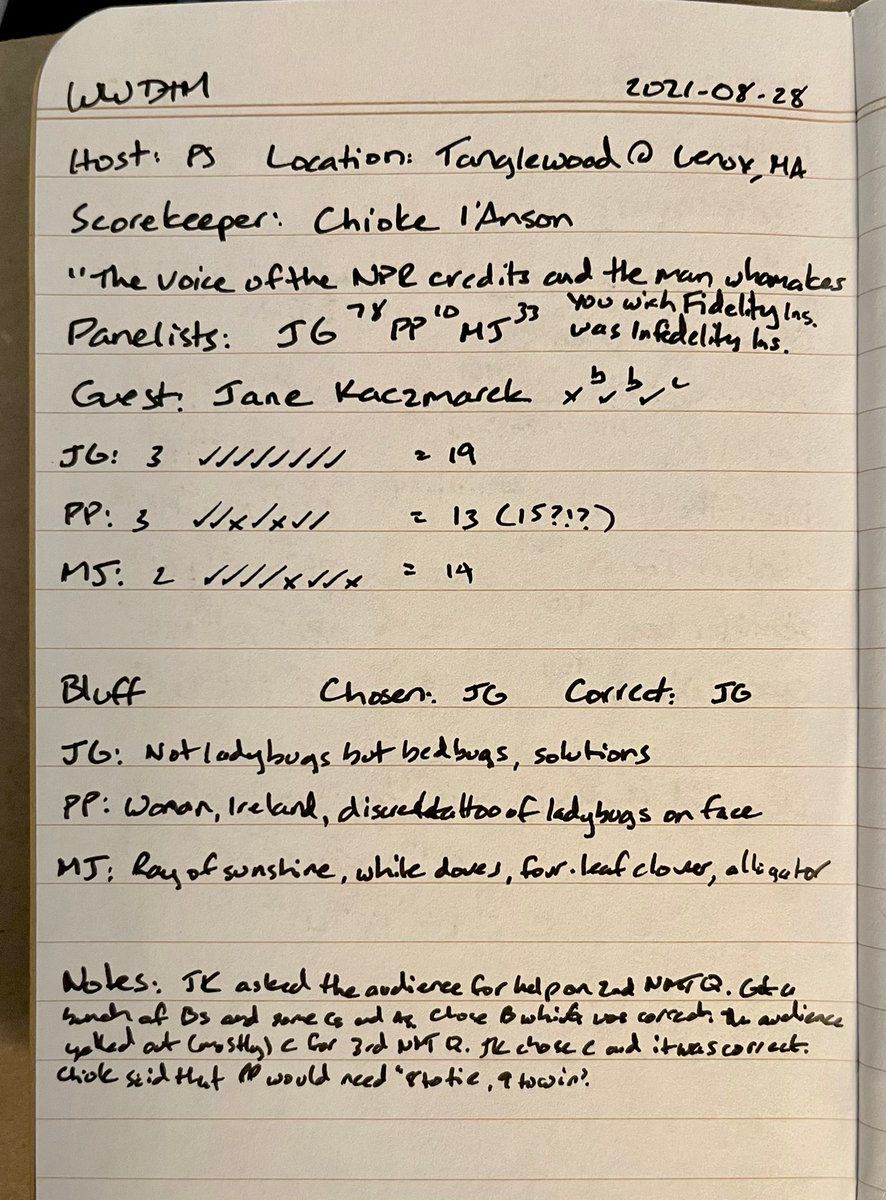 WWDTM 2021-08-28
Host: PS Location: Tanglewood @ Lenox, MA
Scorekeeper: Chioke I'Anson
"The voice of the NPR credits and the man who makes
you wish Fidelity Ins.
Panelists: JG 78 PP 10 MJ 33 was Infedelity Ins.
Guest: Jane Kaczmarek x ✓b ✓b ✓c
JG: 3 ✓✓✓✓✓✓✓✓ = 19
PP: 3 ✓✓x✓x✓✓ = 13 (15?!?)
MJ: 2 ✓✓✓✓x✓✓x = 14
Bluff Chosen: JG Correct: JG
JG: Not ladybugs but bedbugs, solutions
PP: Woman, Ireland, tattoo of ladybugs on face
MJ: Ray of sunshine, white doves, four-leaf clover, alligator
Notes: JK asked the audience for help on 2nd NMJ Q. Got a
bunch of Bs and some Cs and As, chose B which was correct. The audience
yelled out (mostly) C for 3rd NMJ Q. JK chose C and it was correct.
Chioke said that PP would need "8 to tie, 9 to win".